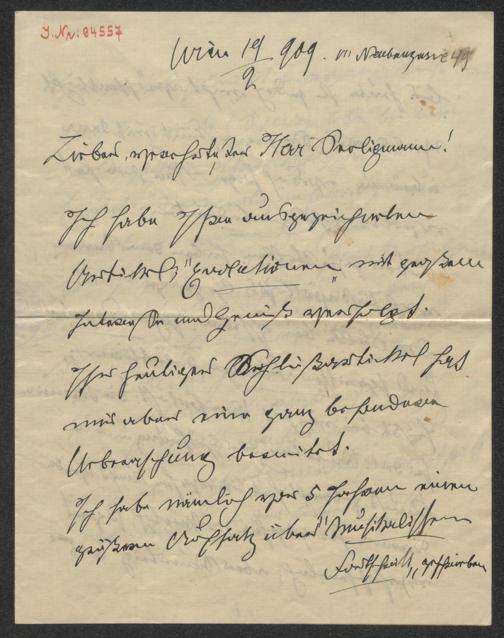 J.Nr. 84557
Wien 19/2 909. VII Neubaugasse
Lieber, verehrtester Herr Seligmann!
Ich habe Ihre ausgezeichneten
Artikel „Evolutionen" mit großem
Interesse und Genuß verfolgt.
Ihr heutiger Schlußartikel hat
mir aber eine ganz besondere
Ueberraschung bereitet.
Ich habe nämlich vor 5 Jahren einen
größeren Aufsatz über „Musikalischen
Fortschritt" geschrieben